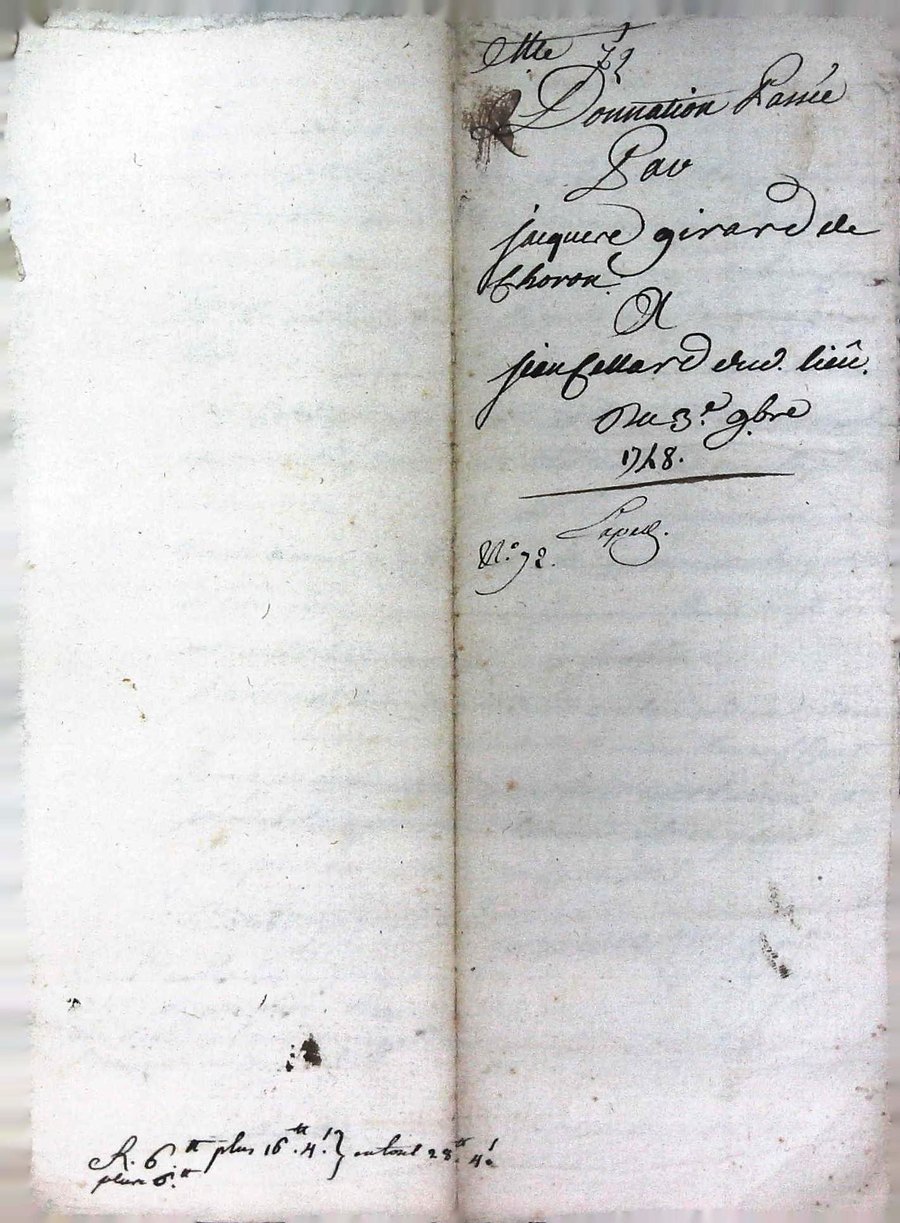 Donnation Passée
Par
jacques girard de
Choron
A
jean Cellard dud. lieû.
Du 3.e 9bre
1748.
N.o 72.
R. 6 tt plus 16 tt. 4 s } en tout 28 tt. 4 s.
plus 6 tt